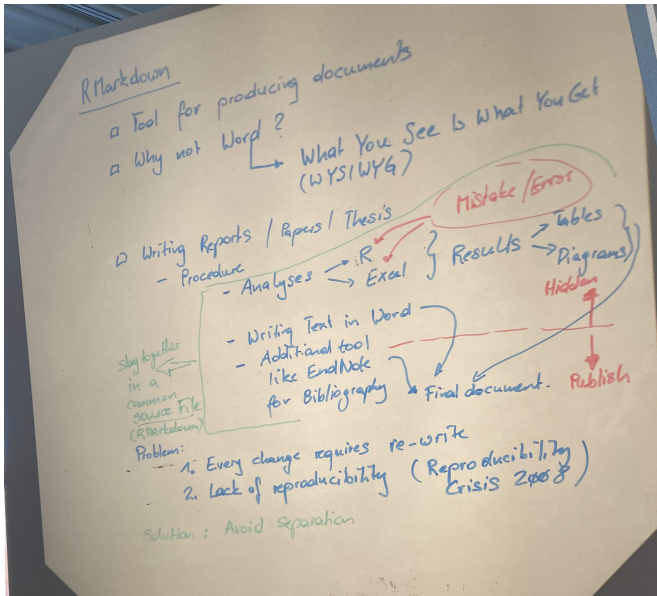 RMarkdown
Tool for producing documents
Why not Word?
What You See Is What You Get
(WYSIWYG)
Mistake/Error
Writing Reports / Papers / Thesis
- Procedure
- Analyses
R
Excel
Results
Tables
Diagrams
Hidden
- Writing Text in Word
- Additional tool
like EndNote
for Bibliography
Final document.
Publish
stay together
in a
common
source File
(RMarkdown)
Problem:
1. Every change requires re-write
2. Lack of reproducibility (Reproducibility
Crisis 2008)
Solution: Avoid Separation